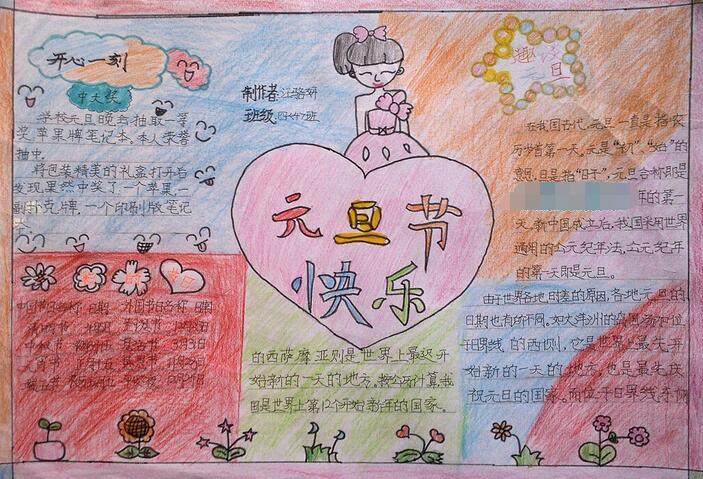 开心一刻
中大奖
学校元旦晚会抽取一等
奖苹果牌笔记本,本人荣誉
抽中。
将包装精美的礼盒打开后
发现果然中奖了一个苹果,一
副扑克牌,一个印刷版笔记
本。
制作者:汪珞妍
班级:四<4>班
元旦节
快乐
趣谈
元旦
在我国古代,元旦一直是指农
历岁首第一天。元是“初”、“始”的
意思,旦是指“日子”,元旦合称即是
年的第一
天。新中国成立后,我国采用世界
通用的公元纪年法,公元纪年
的第一天即是元旦。
中国节日名称 日期 外国节日名称 日期
清明节
中秋节
元宵节
由于世界各地日差的原因,各地元旦的
日期也有所不同。如大洋洲的岛国汤加位
于日界线的西侧,它是世界上最先开
始新的一天的地方,也是最先庆
祝元旦的国家。而位于日界线东侧
的西萨摩亚则是世界上最迟开
始新的一天的地方。按公历计算,我
国是世界上第12个开始新年的国家。